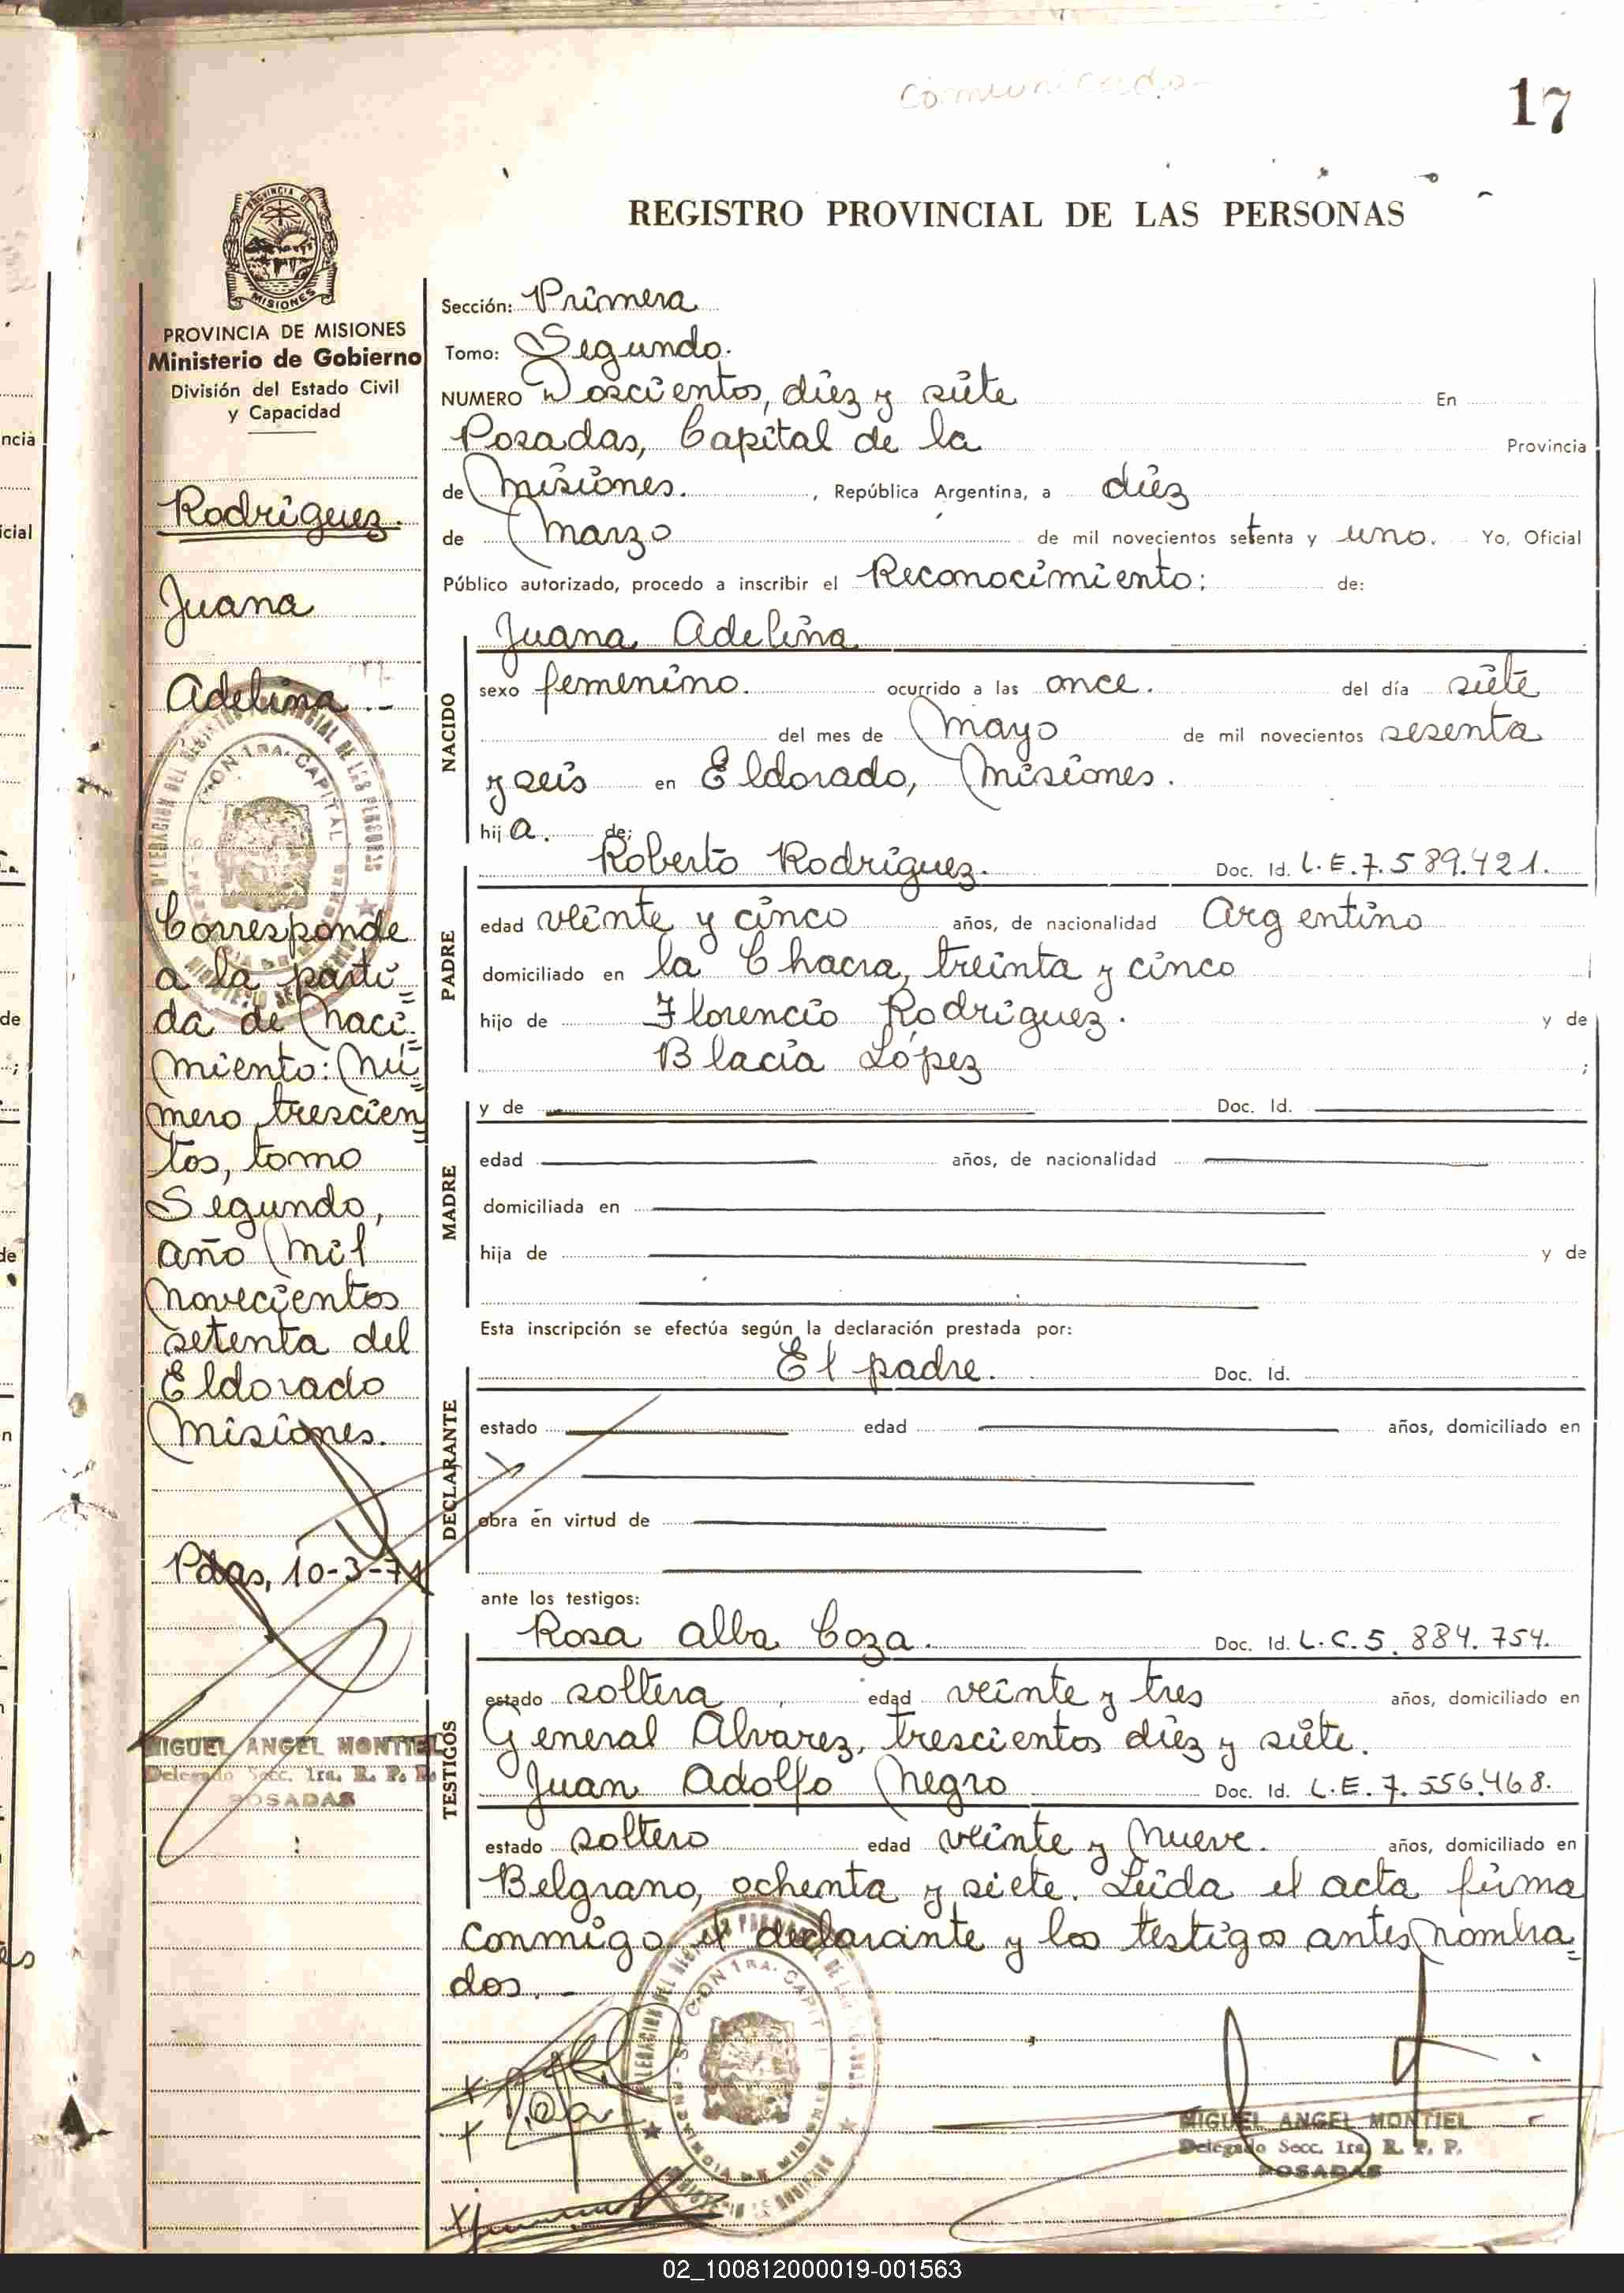 comunicado
17
REGISTRO PROVINCIAL DE LAS PERSONAS
PROVINCIA DE MISIONES
Ministerio de Gobierno
División del Estado Civil
y Capacidad
Rodríguez.
Juana
Adelina.--
Corresponde
a la parti=
da de naci=
miento: Nú=
mero trescien=
tos, tomo
Segundo,
año mil
novecientos
setenta del
Eldorado
Misiones.
Pdas, 10-3-71
MIGUEL ANGEL MONTIEL
Delegado Secc. 1ra. R. P. P.
POSADAS
Sección: Primera
Tomo: Segundo.
NUMERO Doscientos, diez y siete En
Posadas, Capital de la Provincia
de Misiones. , República Argentina, a diez
de Marzo de mil novecientos setenta y uno. Yo, Oficial
Público autorizado, procedo a inscribir el Reconocimiento: de:
NACIDO
Juana Adelina
sexo femenino. ocurrido a las once. del día siete
del mes de Mayo de mil novecientos sesenta
y seis en Eldorado, Misiones.
hij a. de:
PADRE
Roberto Rodríguez. Doc. Id. L.E.7.589.421.
edad veinte y cinco años, de nacionalidad Argentino
domiciliado en la Chacra, treinta y cinco
hijo de Florencio Rodríguez. y de
Blacia López ;
MADRE
y de Doc. Id.
edad años, de nacionalidad
domiciliada en
hija de y de
Esta inscripción se efectúa según la declaración prestada por:
DECLARANTE
El padre. Doc. id.
estado edad años, domiciliado en
obra en virtud de
ante los testigos:
TESTIGOS
Rosa Alba Coza. Doc. Id. L.C.5.884.754.
estado soltera, edad veinte y tres años, domiciliado en
General Alvarez, trescientos diez y siete.
Juan Adolfo Negro Doc. Id. L.E.7.556.468.
estado soltero edad veinte y nueve. años, domiciliado en
Belgrano, ochenta y siete. Leída el acta firma
conmigo el declarante y los testigos antes nombra=
dos.-
MIGUEL ANGEL MONTIEL
Delegado Secc. 1ra. R. P. P.
POSADAS
02_100812000019-001563